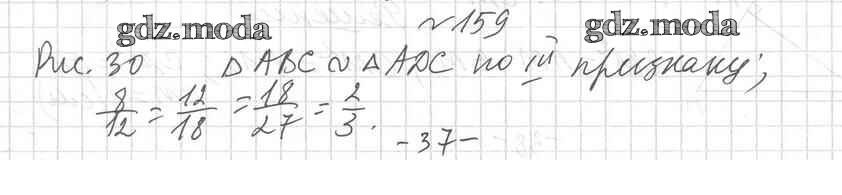 ~159
gdz.moda gdz.moda
Рис. 30 △ABC ~ △ADC по III признаку;
8/12 = 12/18 = 18/27 = 2/3.
-37-